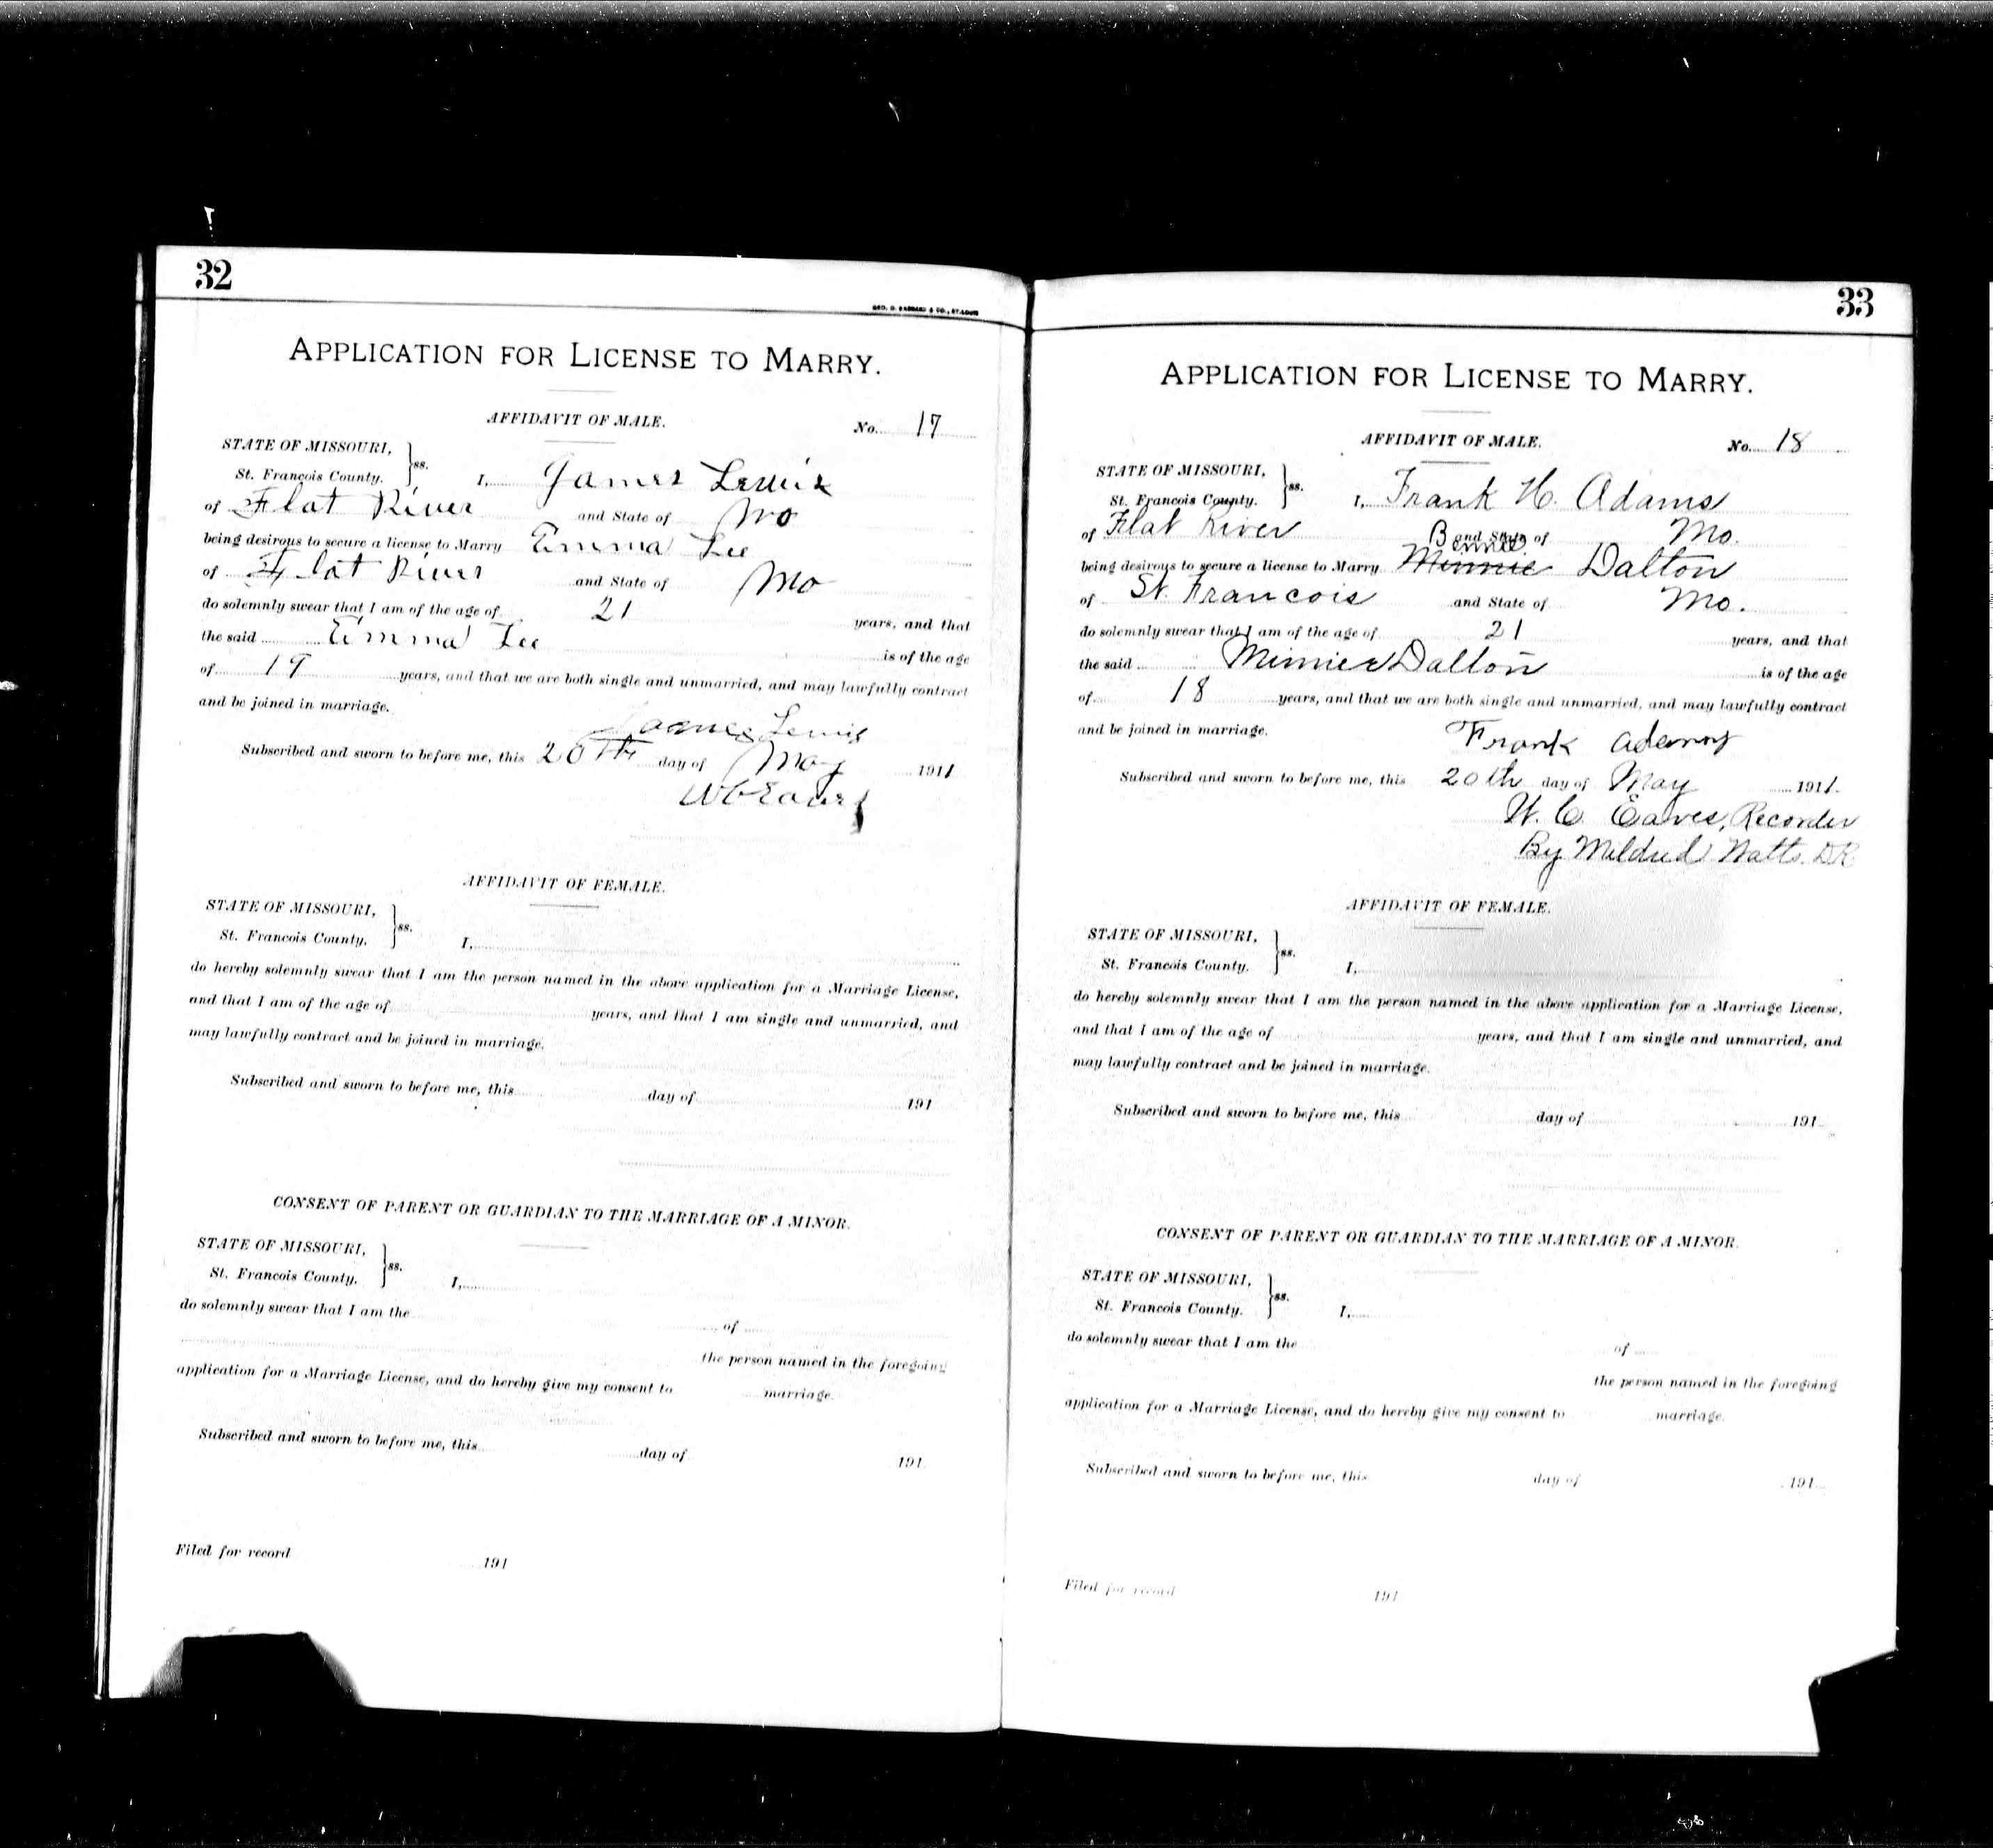 32
GEO. D. BARNARD & CO., ST. LOUIS
APPLICATION FOR LICENSE TO MARRY.
AFFIDAVIT OF MALE.
No. 17
STATE OF MISSOURI,
St. Francois County. } ss. I, James Lewis
of Flat River and State of Mo
being desirous to secure a license to Marry Emma Lee
of Flat River and State of Mo
do solemnly swear that I am of the age of 21 years, and that
the said Emma Lee is of the age
of 19 years, and that we are both single and unmarried, and may lawfully contract
and be joined in marriage.
James Lewis
Subscribed and sworn to before me, this 20th day of May 1911
W C Eaves
AFFIDAVIT OF FEMALE.
STATE OF MISSOURI,
St. Francois County. } ss. I,
do hereby solemnly swear that I am the person named in the above application for a Marriage License,
and that I am of the age of years, and that I am single and unmarried, and
may lawfully contract and be joined in marriage.
Subscribed and sworn to before me, this day of 191
CONSENT OF PARENT OR GUARDIAN TO THE MARRIAGE OF A MINOR.
STATE OF MISSOURI,
St. Francois County. } ss. I,
do solemnly swear that I am the of
the person named in the foregoing
application for a Marriage License, and do hereby give my consent to marriage.
Subscribed and sworn to before me, this day of 191
Filed for record 191
33
APPLICATION FOR LICENSE TO MARRY.
AFFIDAVIT OF MALE.
No. 18
STATE OF MISSOURI,
St. Francois County. } ss. I, Frank H. Adams
of Flat River and State of Mo.
being desirous to secure a license to Marry Minnie Dalton
of St. Francois and State of Mo.
do solemnly swear that I am of the age of 21 years, and that
the said Minnie Dalton is of the age
of 18 years, and that we are both single and unmarried, and may lawfully contract
and be joined in marriage.
Frank Adams
Subscribed and sworn to before me, this 20th day of May 1911.
W. C. Eaves, Recorder
By Mildred Watts. D.R.
AFFIDAVIT OF FEMALE.
STATE OF MISSOURI,
St. Francois County. } ss. I,
do hereby solemnly swear that I am the person named in the above application for a Marriage License,
and that I am of the age of years, and that I am single and unmarried, and
may lawfully contract and be joined in marriage.
Subscribed and sworn to before me, this day of 191
CONSENT OF PARENT OR GUARDIAN TO THE MARRIAGE OF A MINOR.
STATE OF MISSOURI,
St. Francois County. } ss. I,
do solemnly swear that I am the of
the person named in the foregoing
application for a Marriage License, and do hereby give my consent to marriage.
Subscribed and sworn to before me, this day of 191
Filed for record 191